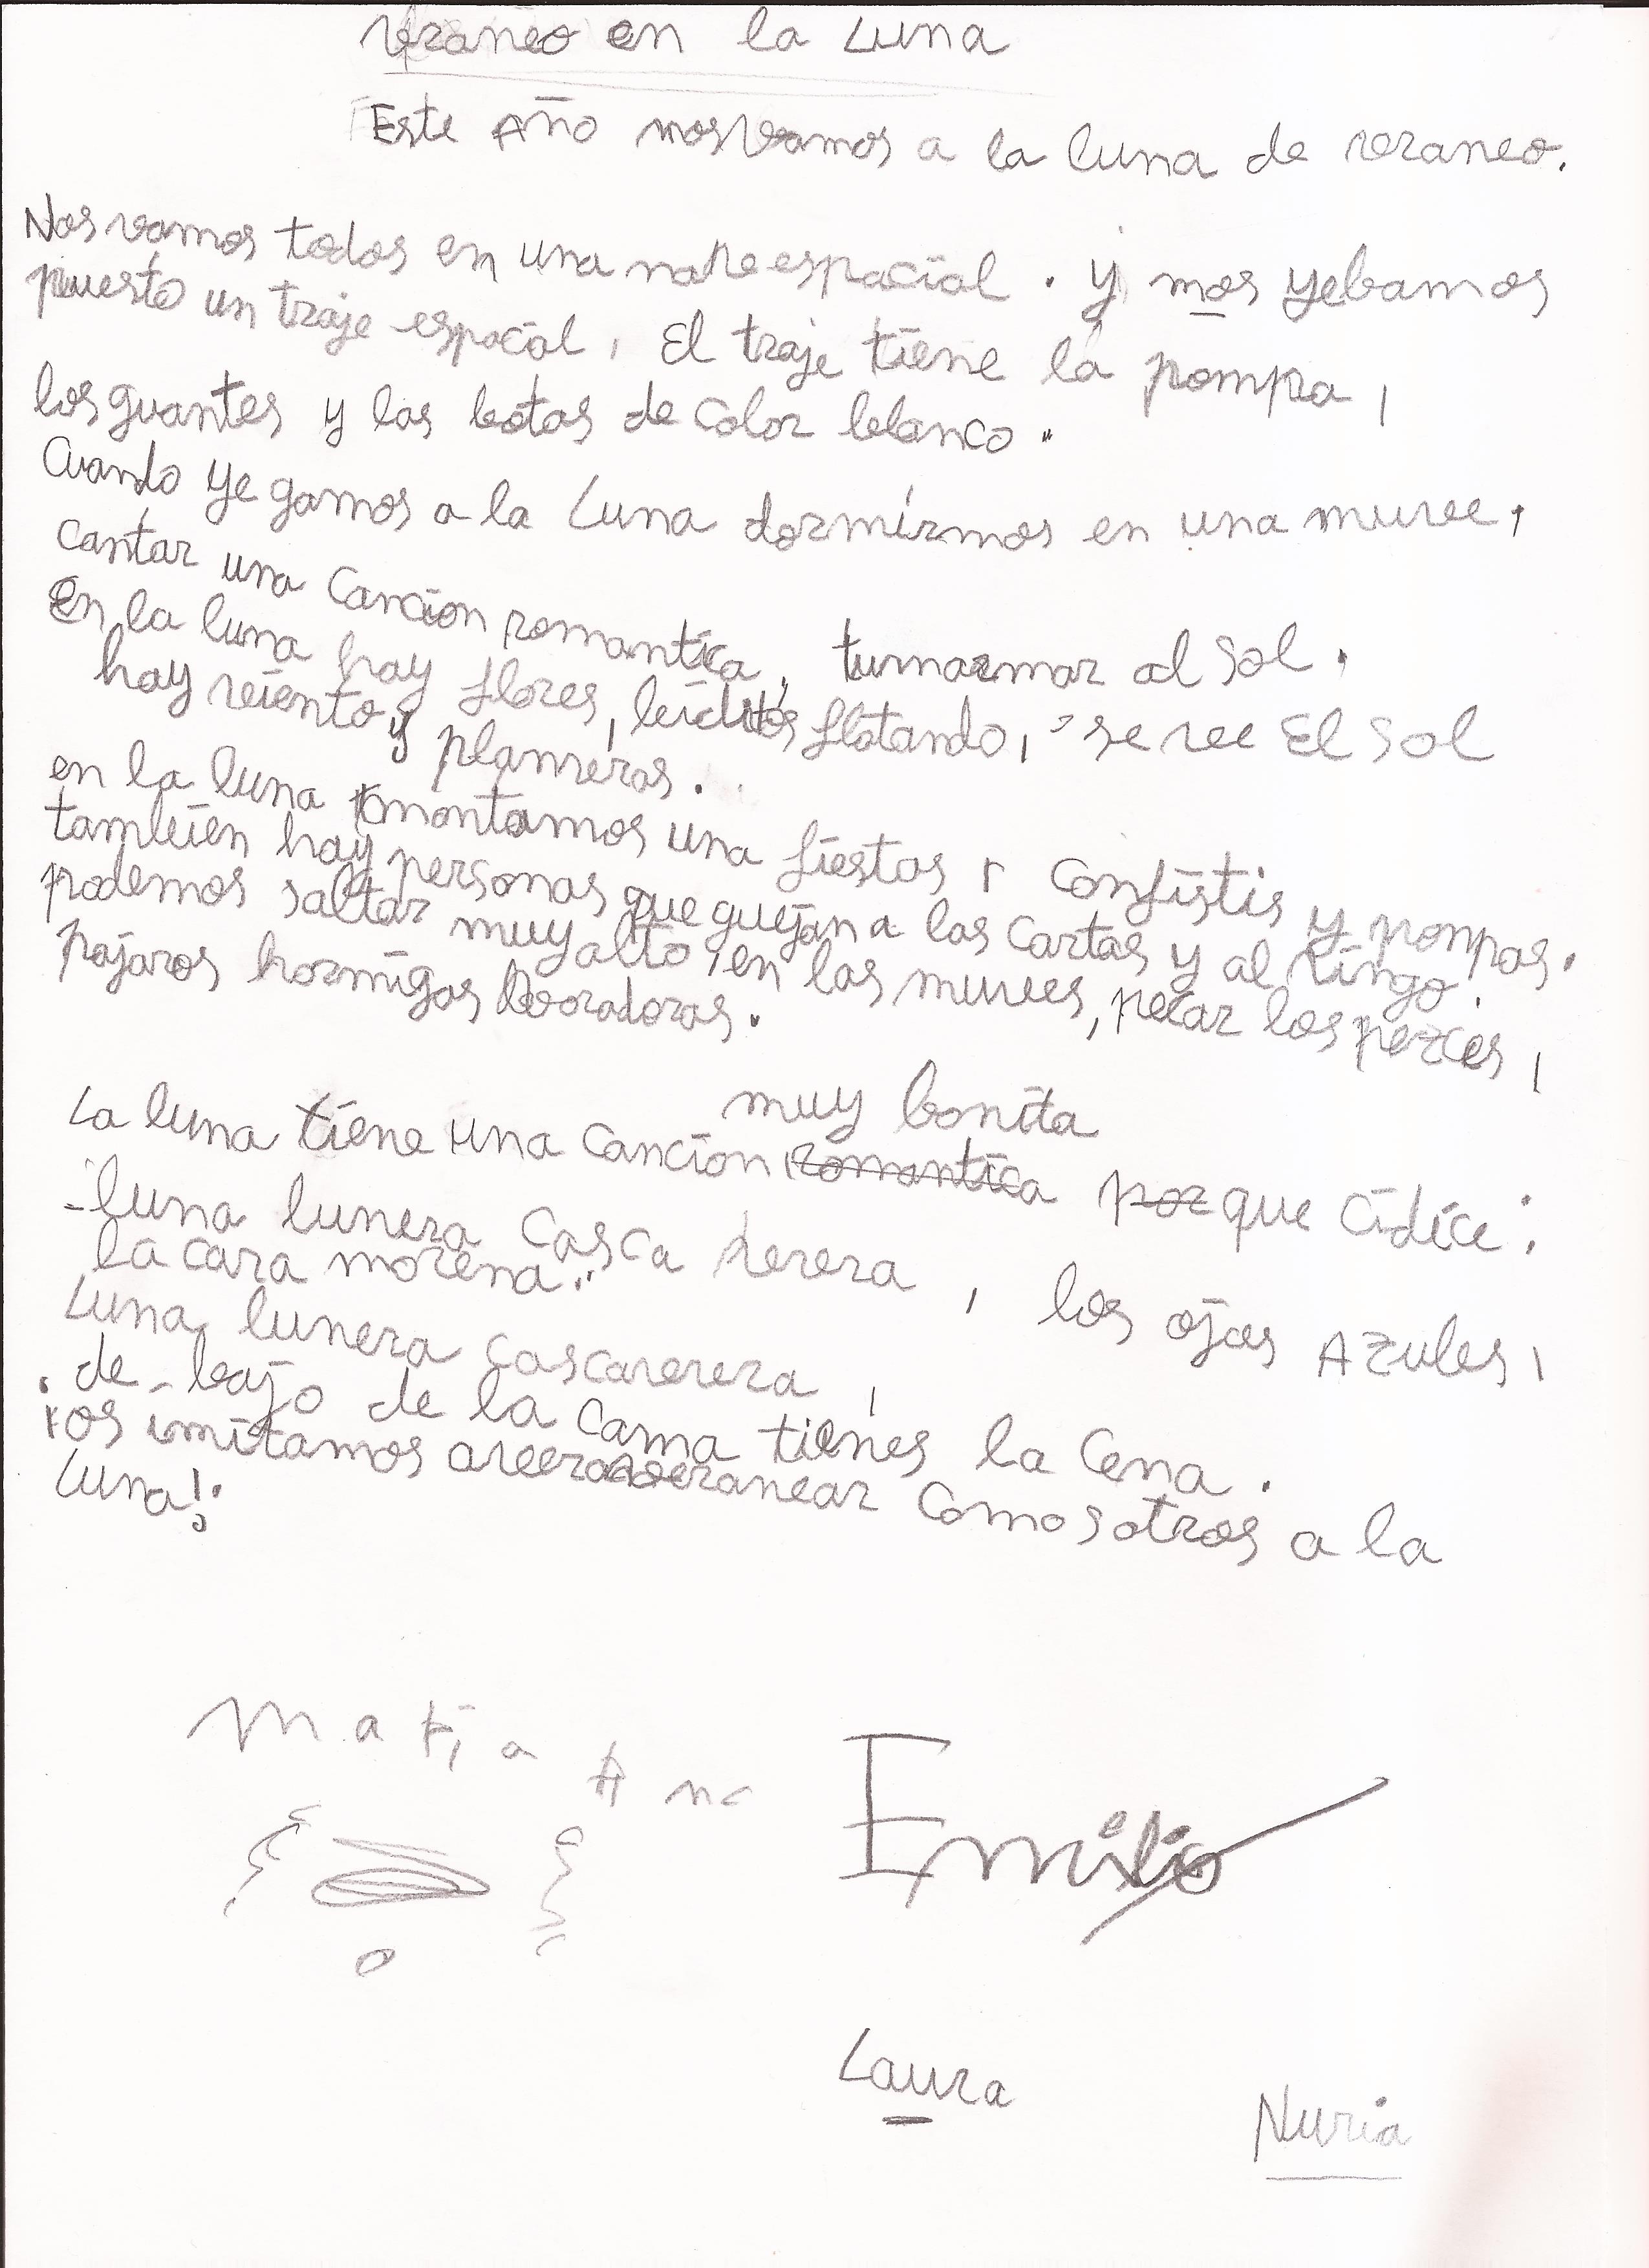 veraneo en la Luna
Este Año nos vamos a la luna de veraneo.
Nos vamos todos en una nave espacial. y nos yebamos
puesto un traje espacial, El traje tiene la pompa,
los guantes y las botas de color blanco.
Cuando yegamos a la Luna dormirmos en una nuvee,
cantar una cancion romantica, tumarmar al sol.
En la luna hay flores, flotando, se vee El sol
hay viento y
en la luna montamos una fiestas confistis y ponpas.
tambien hay personas que guejan a las cartas y al Ringo.
podemos saltar muy alto, en las nuvees, pecar los pezces,
pajaros hormigas
muy bonita
La luna tiene una cancion romantica por que cidice:
-luna lunera casca verera, los ojos Azules,
la cara morena."
Luna lunera cascarerera,
de-bajo de la cama tienes la cena.
imitamos comosotros a la
Luna!
Matia Ana
Emilio
Laura
Nuria